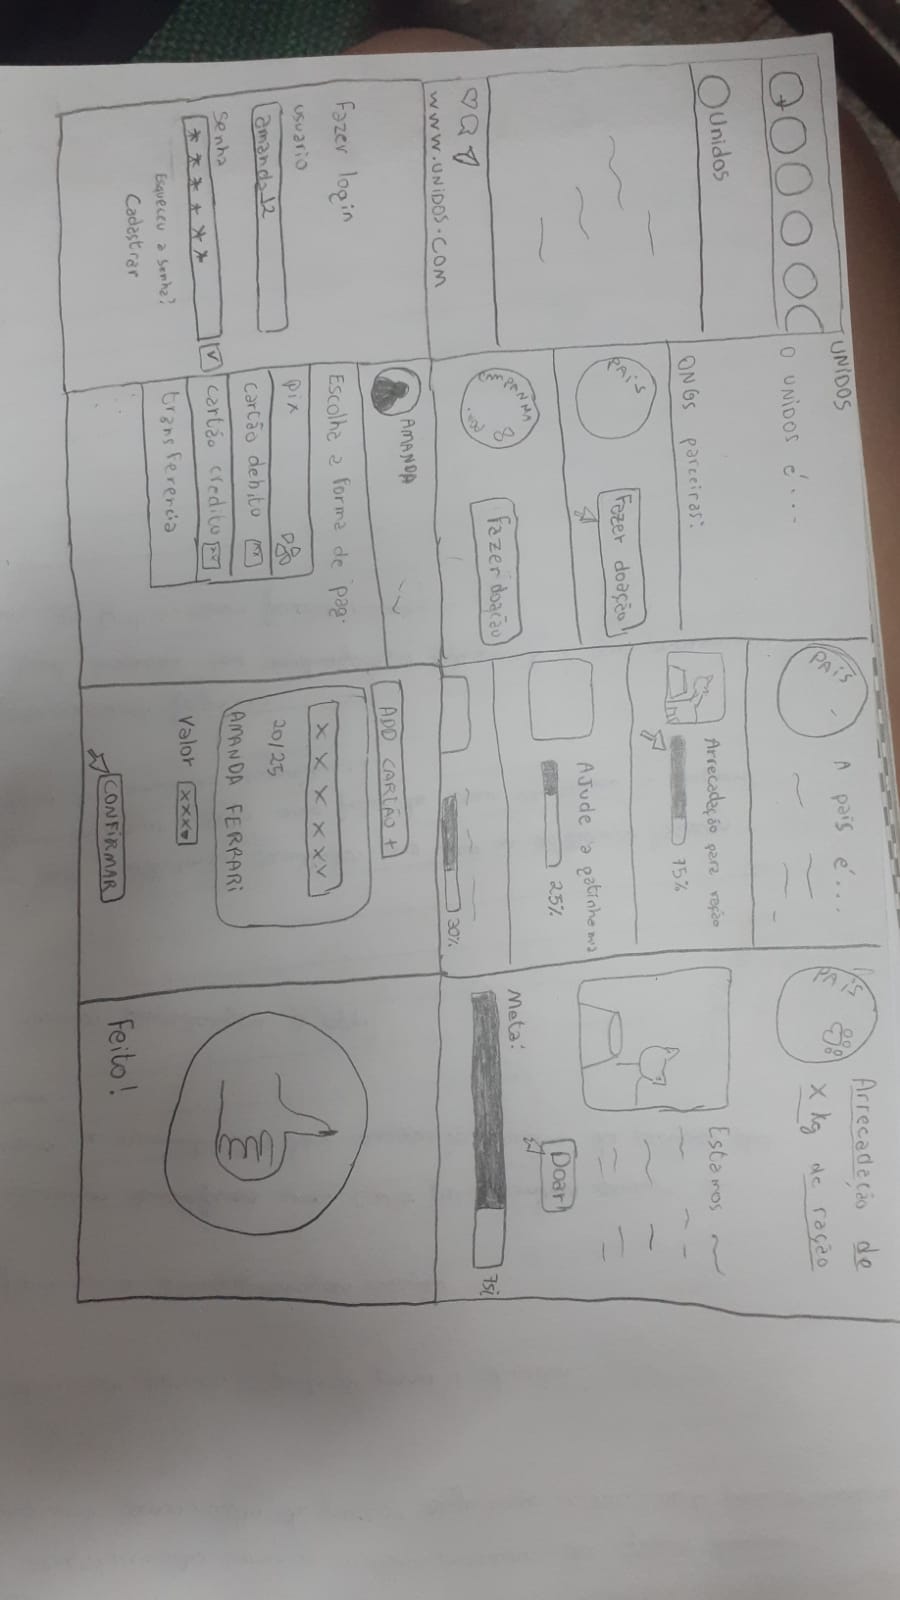 Unidos
WWW.UNIDOS.COM
UNIDOS
O UNIDOS é...
ONGS parceiras:
PAIS
Fazer doação
Fazer doação
PAIS
A pais é...
Arrecadação para ração
75%
Ajude a gatinha
25%
30%
PAIS
Arrecadação de
X Kg de ração
Estamos
Doar
Meta:
75%
Fazer login
usuario
amanda12
Senha
******
Esqueceu a senha?
Cadastrar
AMANDA
Escolha a forma de pag.
pix
cartão debito
cartão credito
transferencia
ADD CARTÃO +
X X X X X X
20/25
AMANDA FERRARI
Valor XXX
CONFIRMAR
Feito!